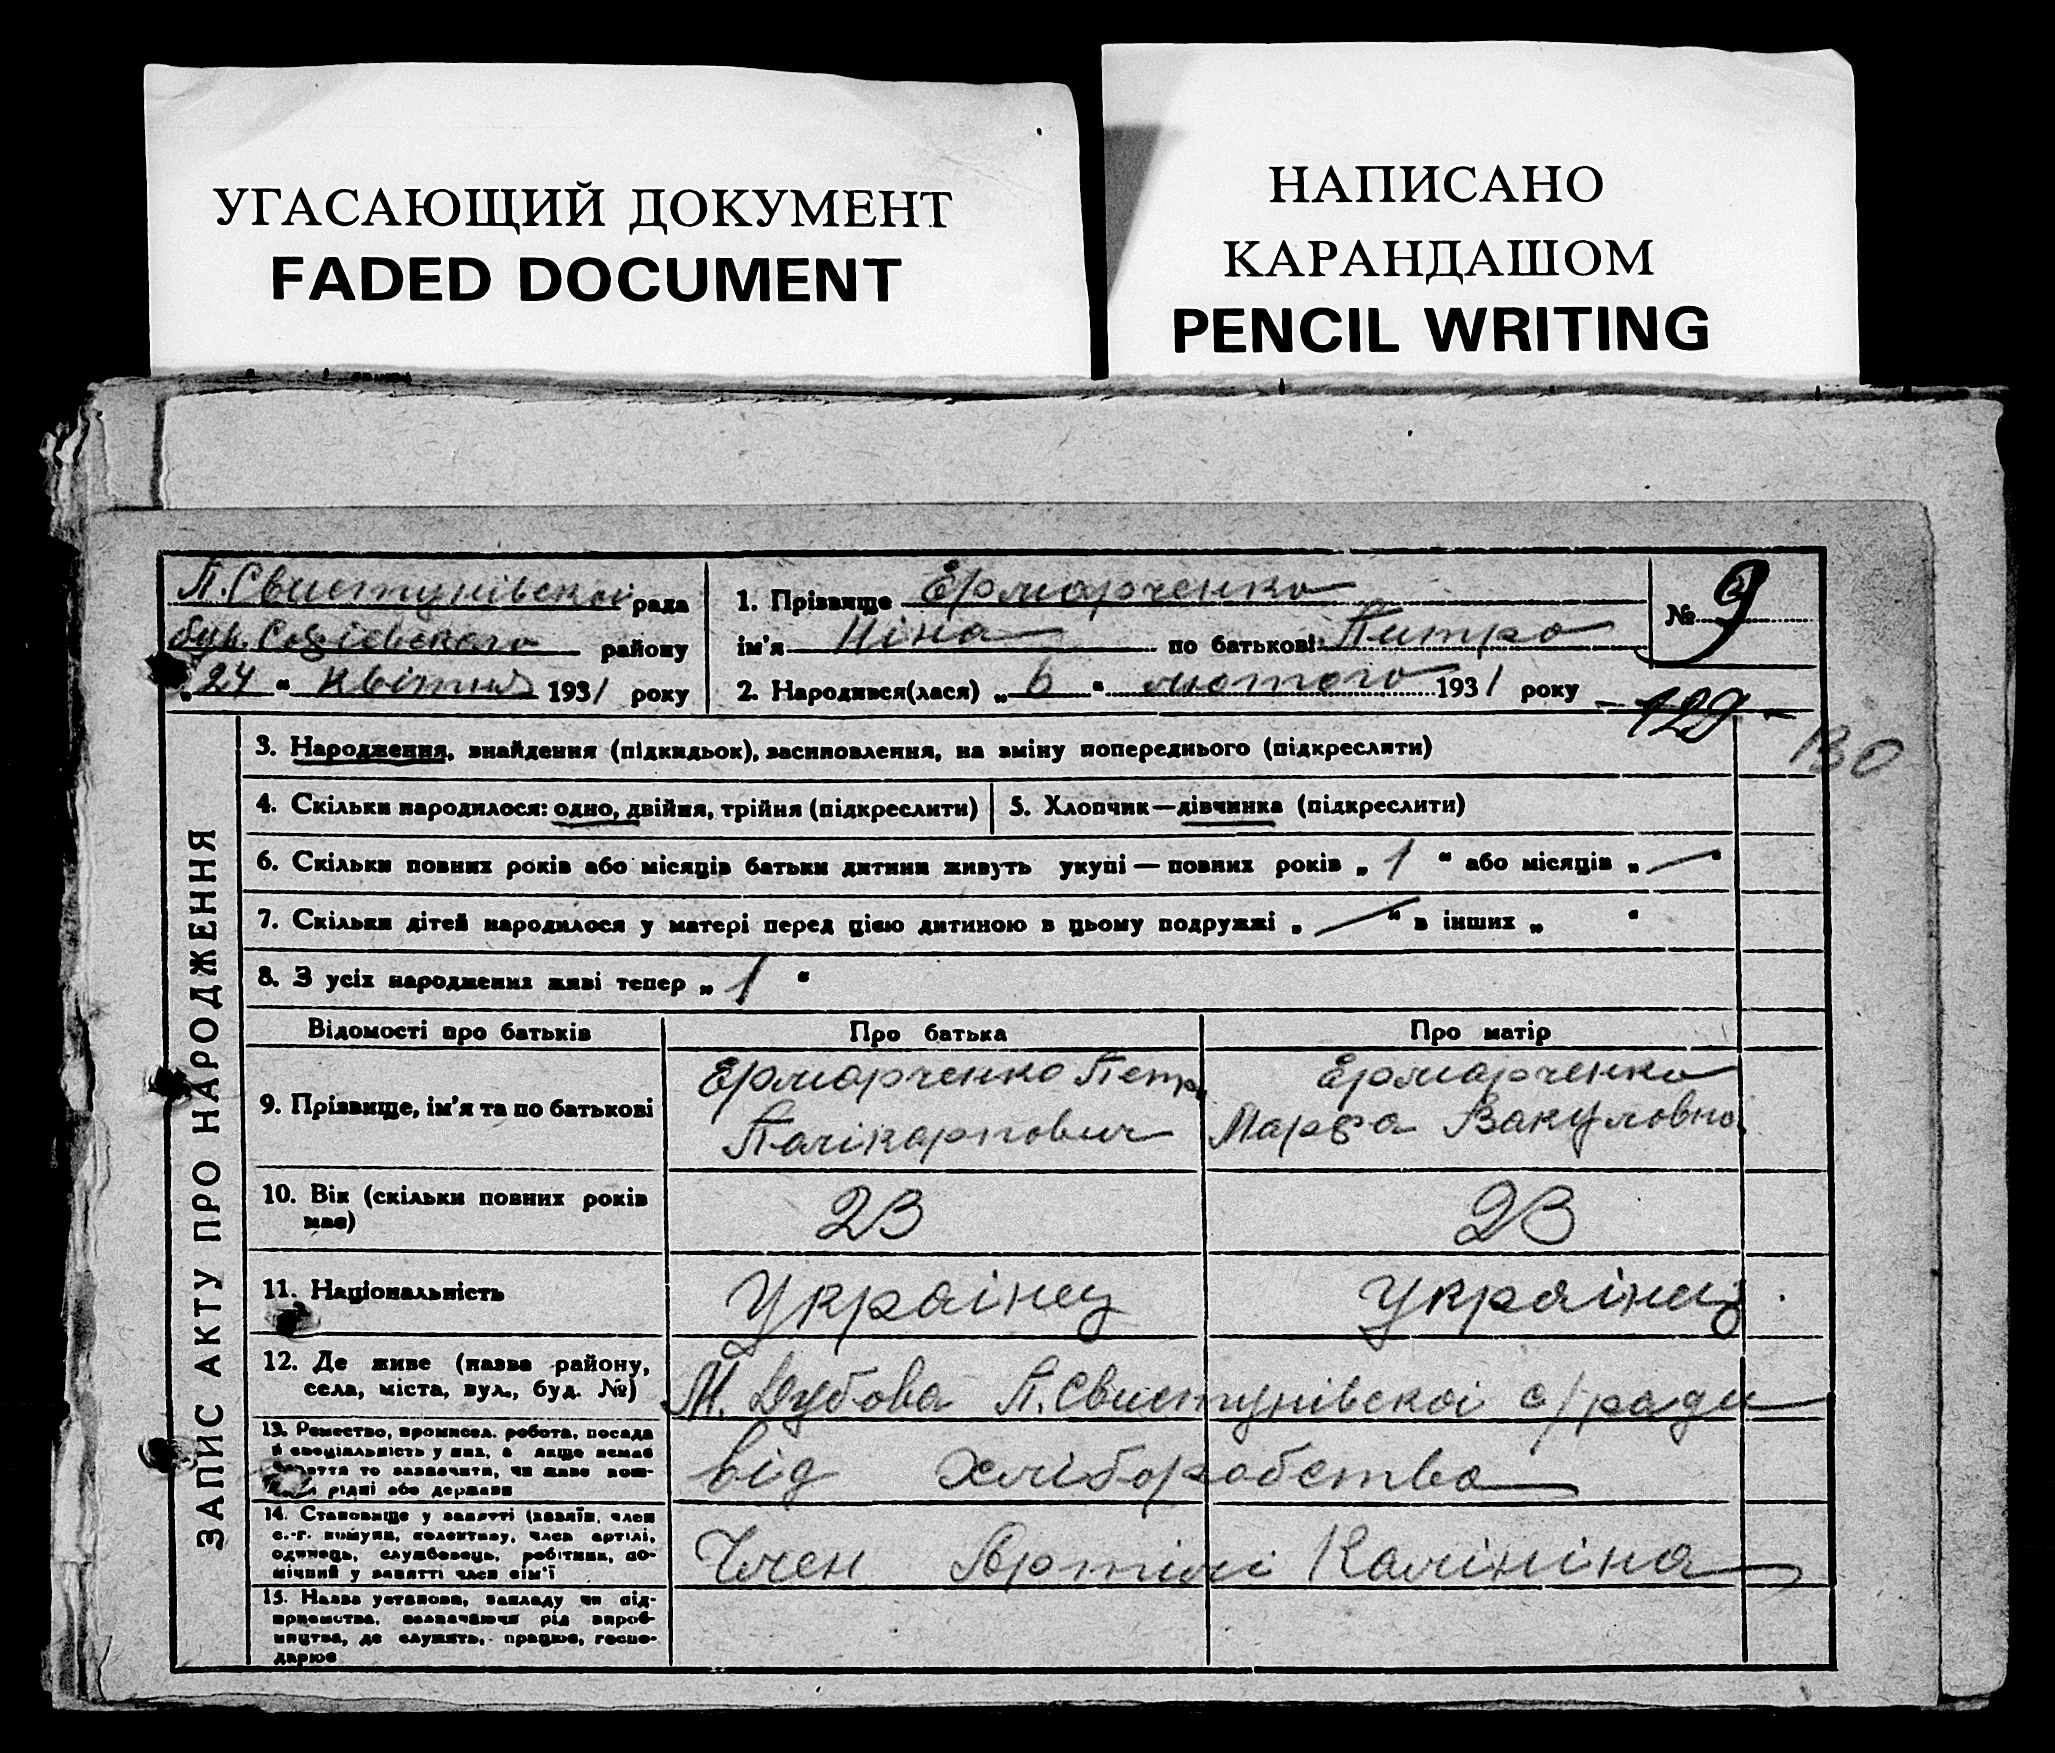 УГАСАЮЩИЙ ДОКУМЕНТ
FADED DOCUMENT
НАПИСАНО
КАРАНДАШОМ
PENCIL WRITING
П. Свистунівскої рада
району
„24“ Квітня 1931 року
1. Прізвище Ермарченко
ім'я Ніна по батькові Питро
2. Народився(лася) „6“ лютого 1931 року
№ 9
- 129 -
130
ЗАПИС АКТУ ПРО НАРОДЖЕННЯ
3. Народження, знайдення (підкидьок), засиновлення, на зміну попереднього (підкреслити)
4. Скільки народилося: одно, двійня, трійня (підкреслити)
5. Хлопчик—дівчинка (підкреслити)
6. Скільки повних років або місяців батьки дитини живуть укупі — повних років „1“ або місяців „—“
7. Скільки дітей народилося у матері перед цією дитиною в цьому подружжі „—“ в інших „ “
8. З усіх народжених живі тепер „1“
Відомості про батьків Про батька Про матір
9. Прізвище, ім'я та по батькові
Ермарченко Петр
Полікарпович
Ермарченко
Марфа Вакуловно
10. Вік (скільки повних років
має)
23
23
11. Національність
Українец
Українец
12. Де живе (назва району,
села, міста, вул., буд. №)
М. Дубова П. Свистунівскоі с/ради
13. Ремество, промисел, робота, посада
й спеціальність у них, а якщо немає
то зазначити, чи живе
рідні або держави
від хліборобства
14. Становище у занятті (хазяїн, член
с.-г. комуни, колективу, член артілі,
одинець, службовець, робітник, по-
мічний у занятті член сім'ї
Член Артілі Калініна
15. Назва установи, закладу чи під-
приємства, зазначаючи рід вироб-
ництва, де служить, працює, госпо-
дарює